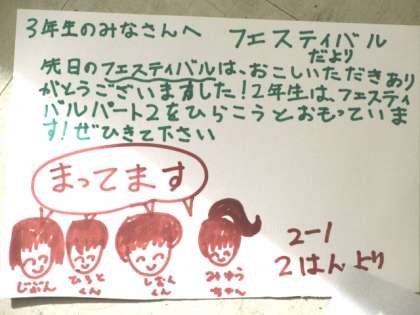 3年生のみなさんへ フェスティバル
だより
先日のフェスティバルは、おこしいただきあり
がとうございますした!2年生は、フェスティ
バルパート2をひらこうとおもっていま
す!ぜひきて下さい
まってます
じぶん
ひろと
くん
しおん
くん
みゆう
ちゃん
2-1
2はんより